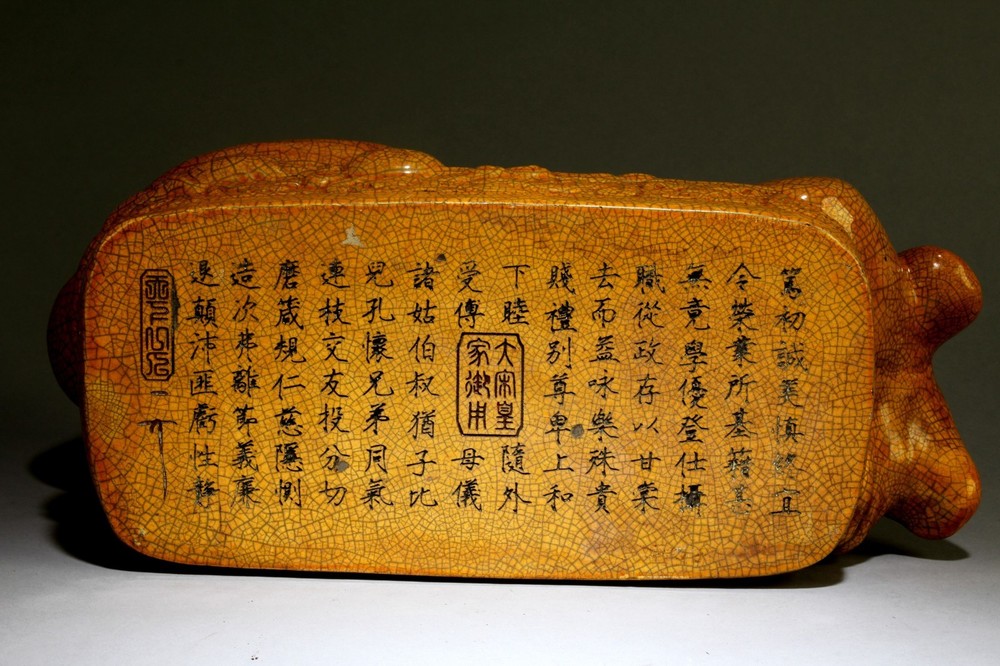 篤初誠美慎終宜
令榮業所基籍甚
無竟學優登仕攝
職從政存以甘棠
去而益咏樂殊貴
賤禮別尊卑上和
下睦隨外
受傅母儀
大宋皇
家御用
諸姑伯叔猶子比
兒孔懷兄弟同氣
連枝交友投分切
磨箴規仁慈隱惻
造次弗離節義廉
退顛沛匪虧性靜